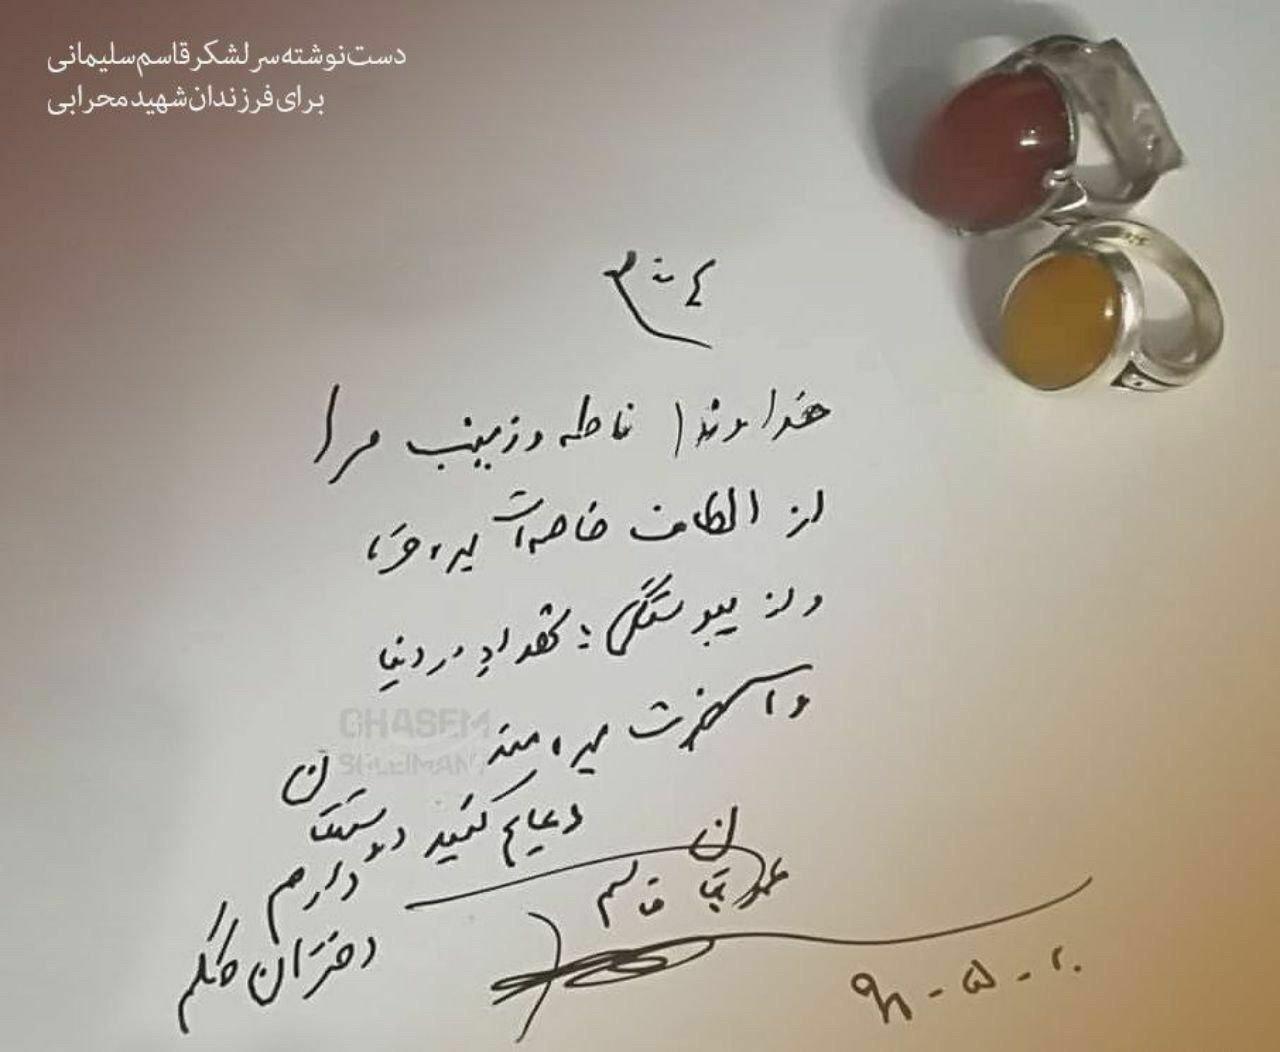 دست‌نوشته سرلشکر قاسم سلیمانی
برای فرزندان شهید محرابی
خداوندا فاطمه و زینب مرا
از الطاف خاصه‌ات بهره
و از پیوستگی به شهدا در دنیا
و آخرت بهره‌مند
دعایم کنید دوستتان
دارم
دختران گلم
عمویتان قاسم
GHASEM
SOLEIMANI